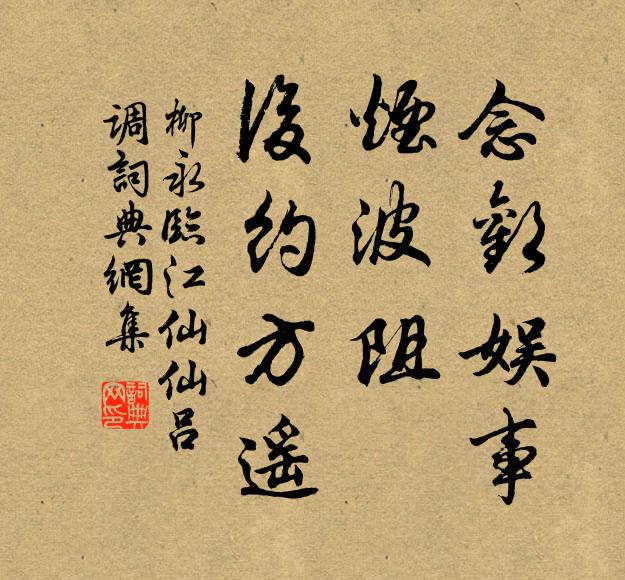 念歡娛事
煙波阻
後約方遙
柳永臨江仙仙呂
调詞典網集
詞典
网印